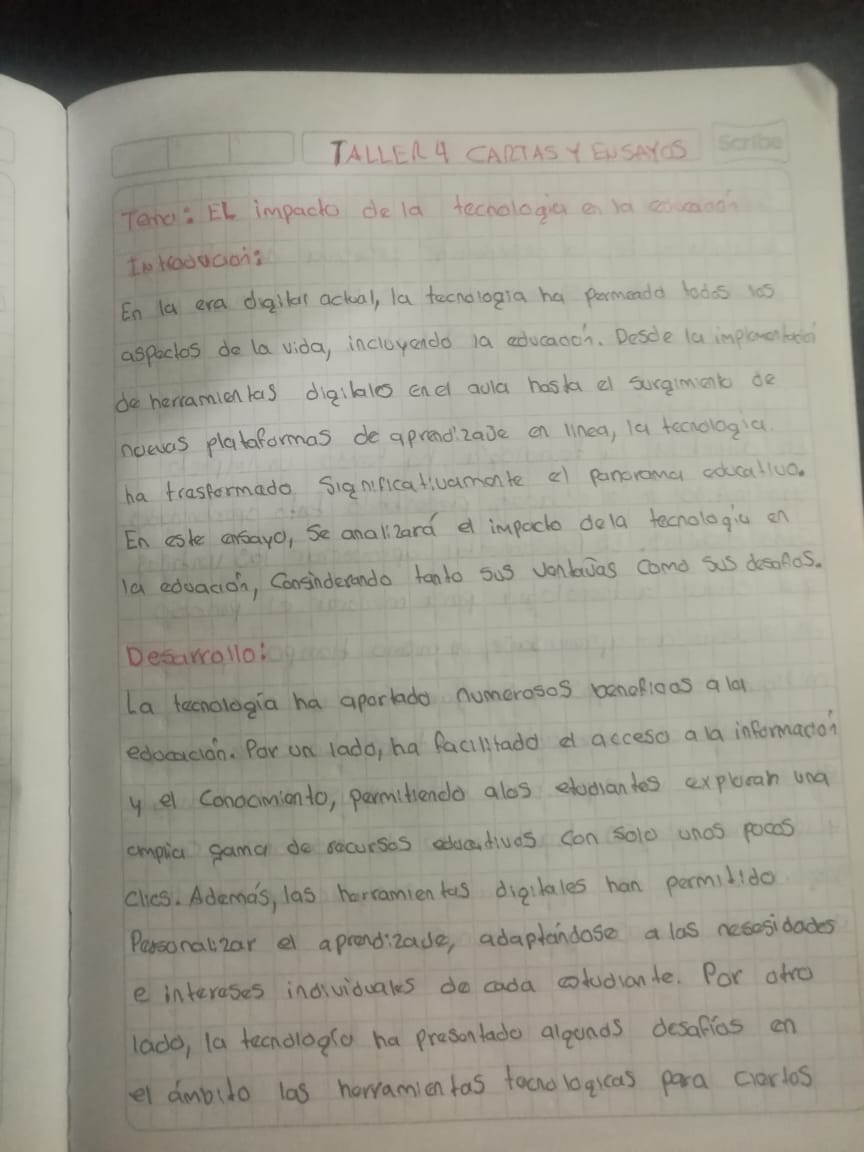 TALLER 4 CARTAS Y ENSAYOS
Scribe
Tema: EL impacto de la tecnologia en la educación
Introducion:
En la era digital actual, la tecnologia ha permeado todos los
aspectos de la vida, incluyendo la educación. Desde la implementación
de herramientas digitales en el aula hasta el surgimiento de
nuevas plataformas de aprendizaje en linea, la tecnologia
ha trasformado significativamente el panorama educativo.
En este ensayo, se analizará el impacto de la tecnologia en
la eduación, Consinderando tanto sus ventajas como sus desafios.
Desarrollo:
La tecnología ha aportado numerosos beneficios a la
educación. Por un lado, ha facilitado el acceso a la información
y el Conocimiento, permitiendo alos etudiantes explorar una
amplia gama de recursos educativos con solo unos pocos
clics. Además, las herramientas digitales han permitido
Personalizar el aprendizaje, adaptándose a las nesesidades
e intereses individuales de cada estudiante. Por otro
lado, la tecnología ha presentado algunos desafíos en
el ámbito las herramientas tecnologicas para ciertos